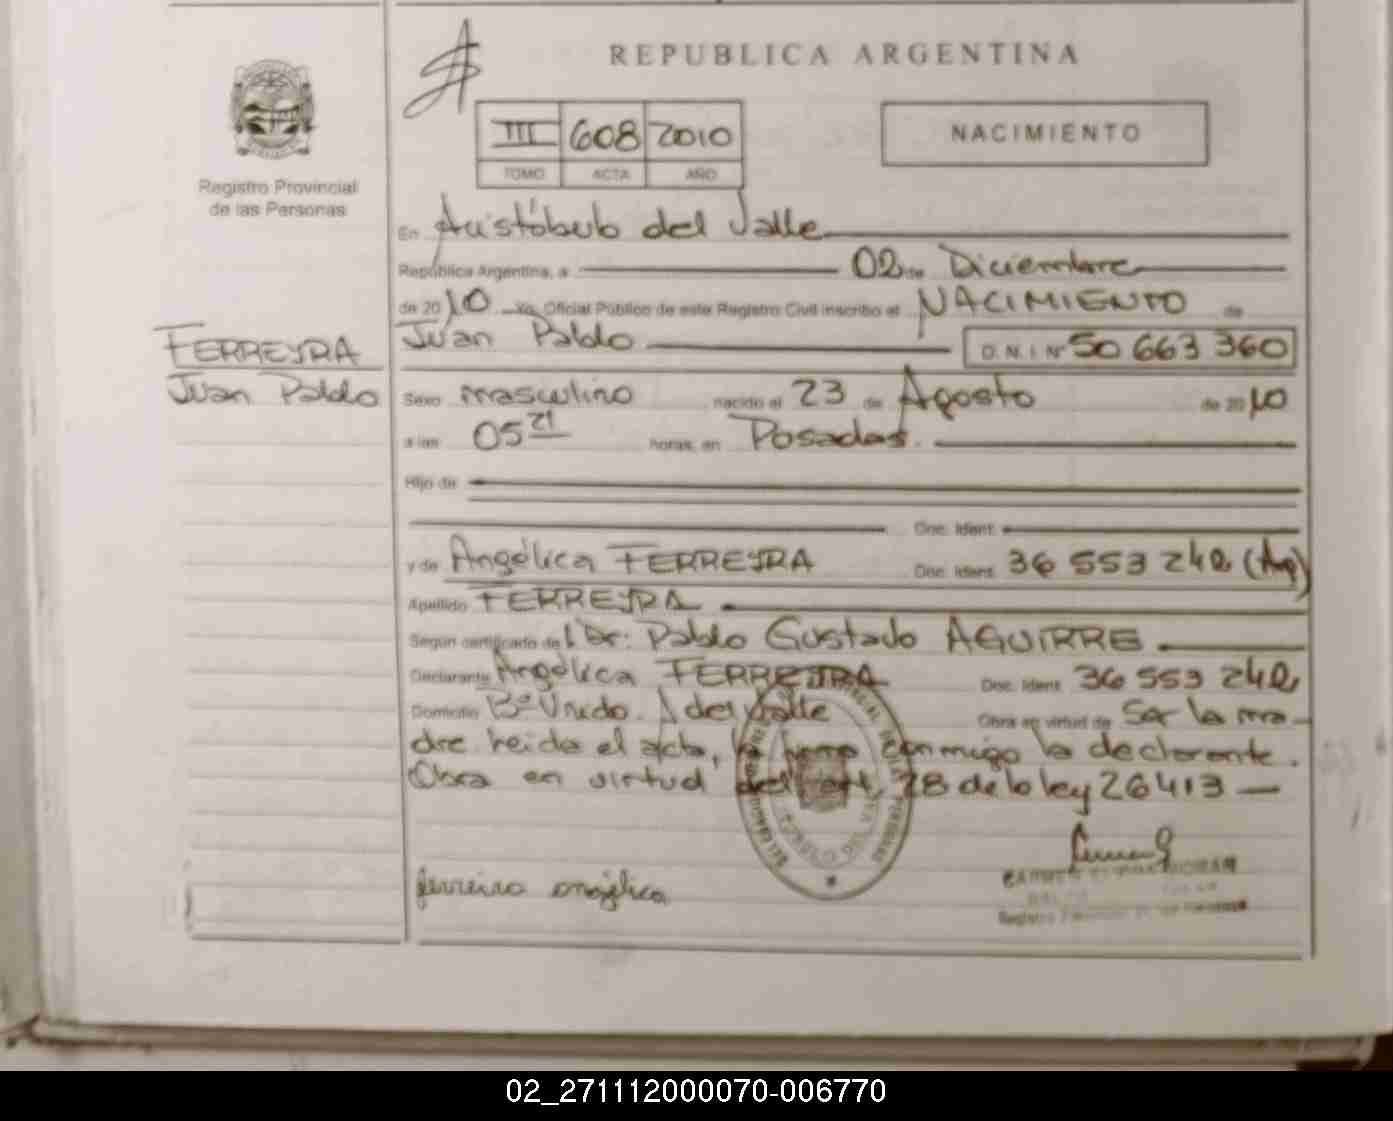 REPUBLICA ARGENTINA
III 608 2010
TOMO ACTA AÑO
NACIMIENTO
Registro Provincial
de las Personas
En Aristóbulo del Valle
República Argentina, a 02 de Diciembre
de 2010 Yo, Oficial Público de este Registro Civil inscribo el NACIMIENTO de
Juan Pablo D.N.I Nº 50 663 360
FERREYRA
Juan Pablo
Sexo masculino nacido el 23 de Agosto de 2010
a las 05 21 horas, en Posadas.
Hijo de
Doc. Ident.
y de Angélica FERREYRA Doc. Ident. 36 553 242 (Arg)
Apellido FERREYRA
Según certificado del Dr: Pablo Gustavo AGUIRRE
Declarante Angélica FERREYRA Doc. Ident. 36 553 242
Domicilio Bº Unido. A del Valle Obra en virtud de Ser la ma-
dre. leida el acta, la firma conmigo la declarante.
Obra en virtud del art. 28 de la ley 26413
ferreira angelica
Registro
02_271112000070-006770